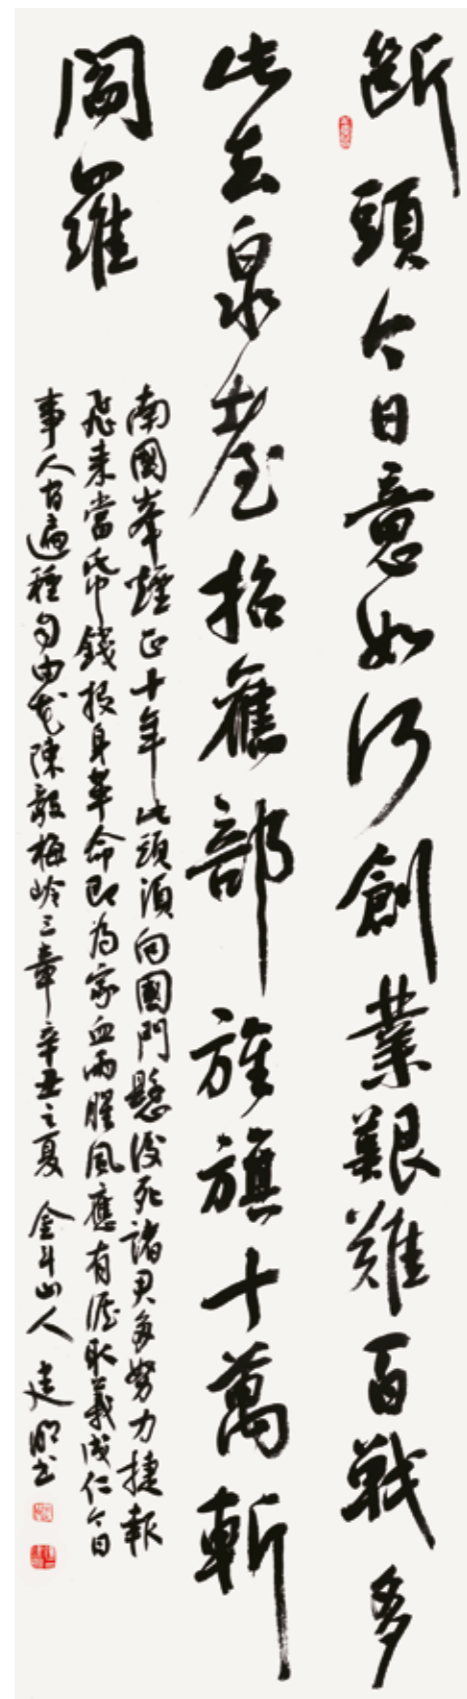 斷頭今日意如何創業艱難百戰多
此去泉臺招舊部旌旗十萬斬
閻羅
南國峯煙正十年此頭須向國門懸後死諸君多努力捷報
飛來當帋錢投身革命即為家血雨腥風應有涯取義成仁今日
事人間遍種自由花陳毅梅嶺三章辛丑之夏 金斗山人 建明书